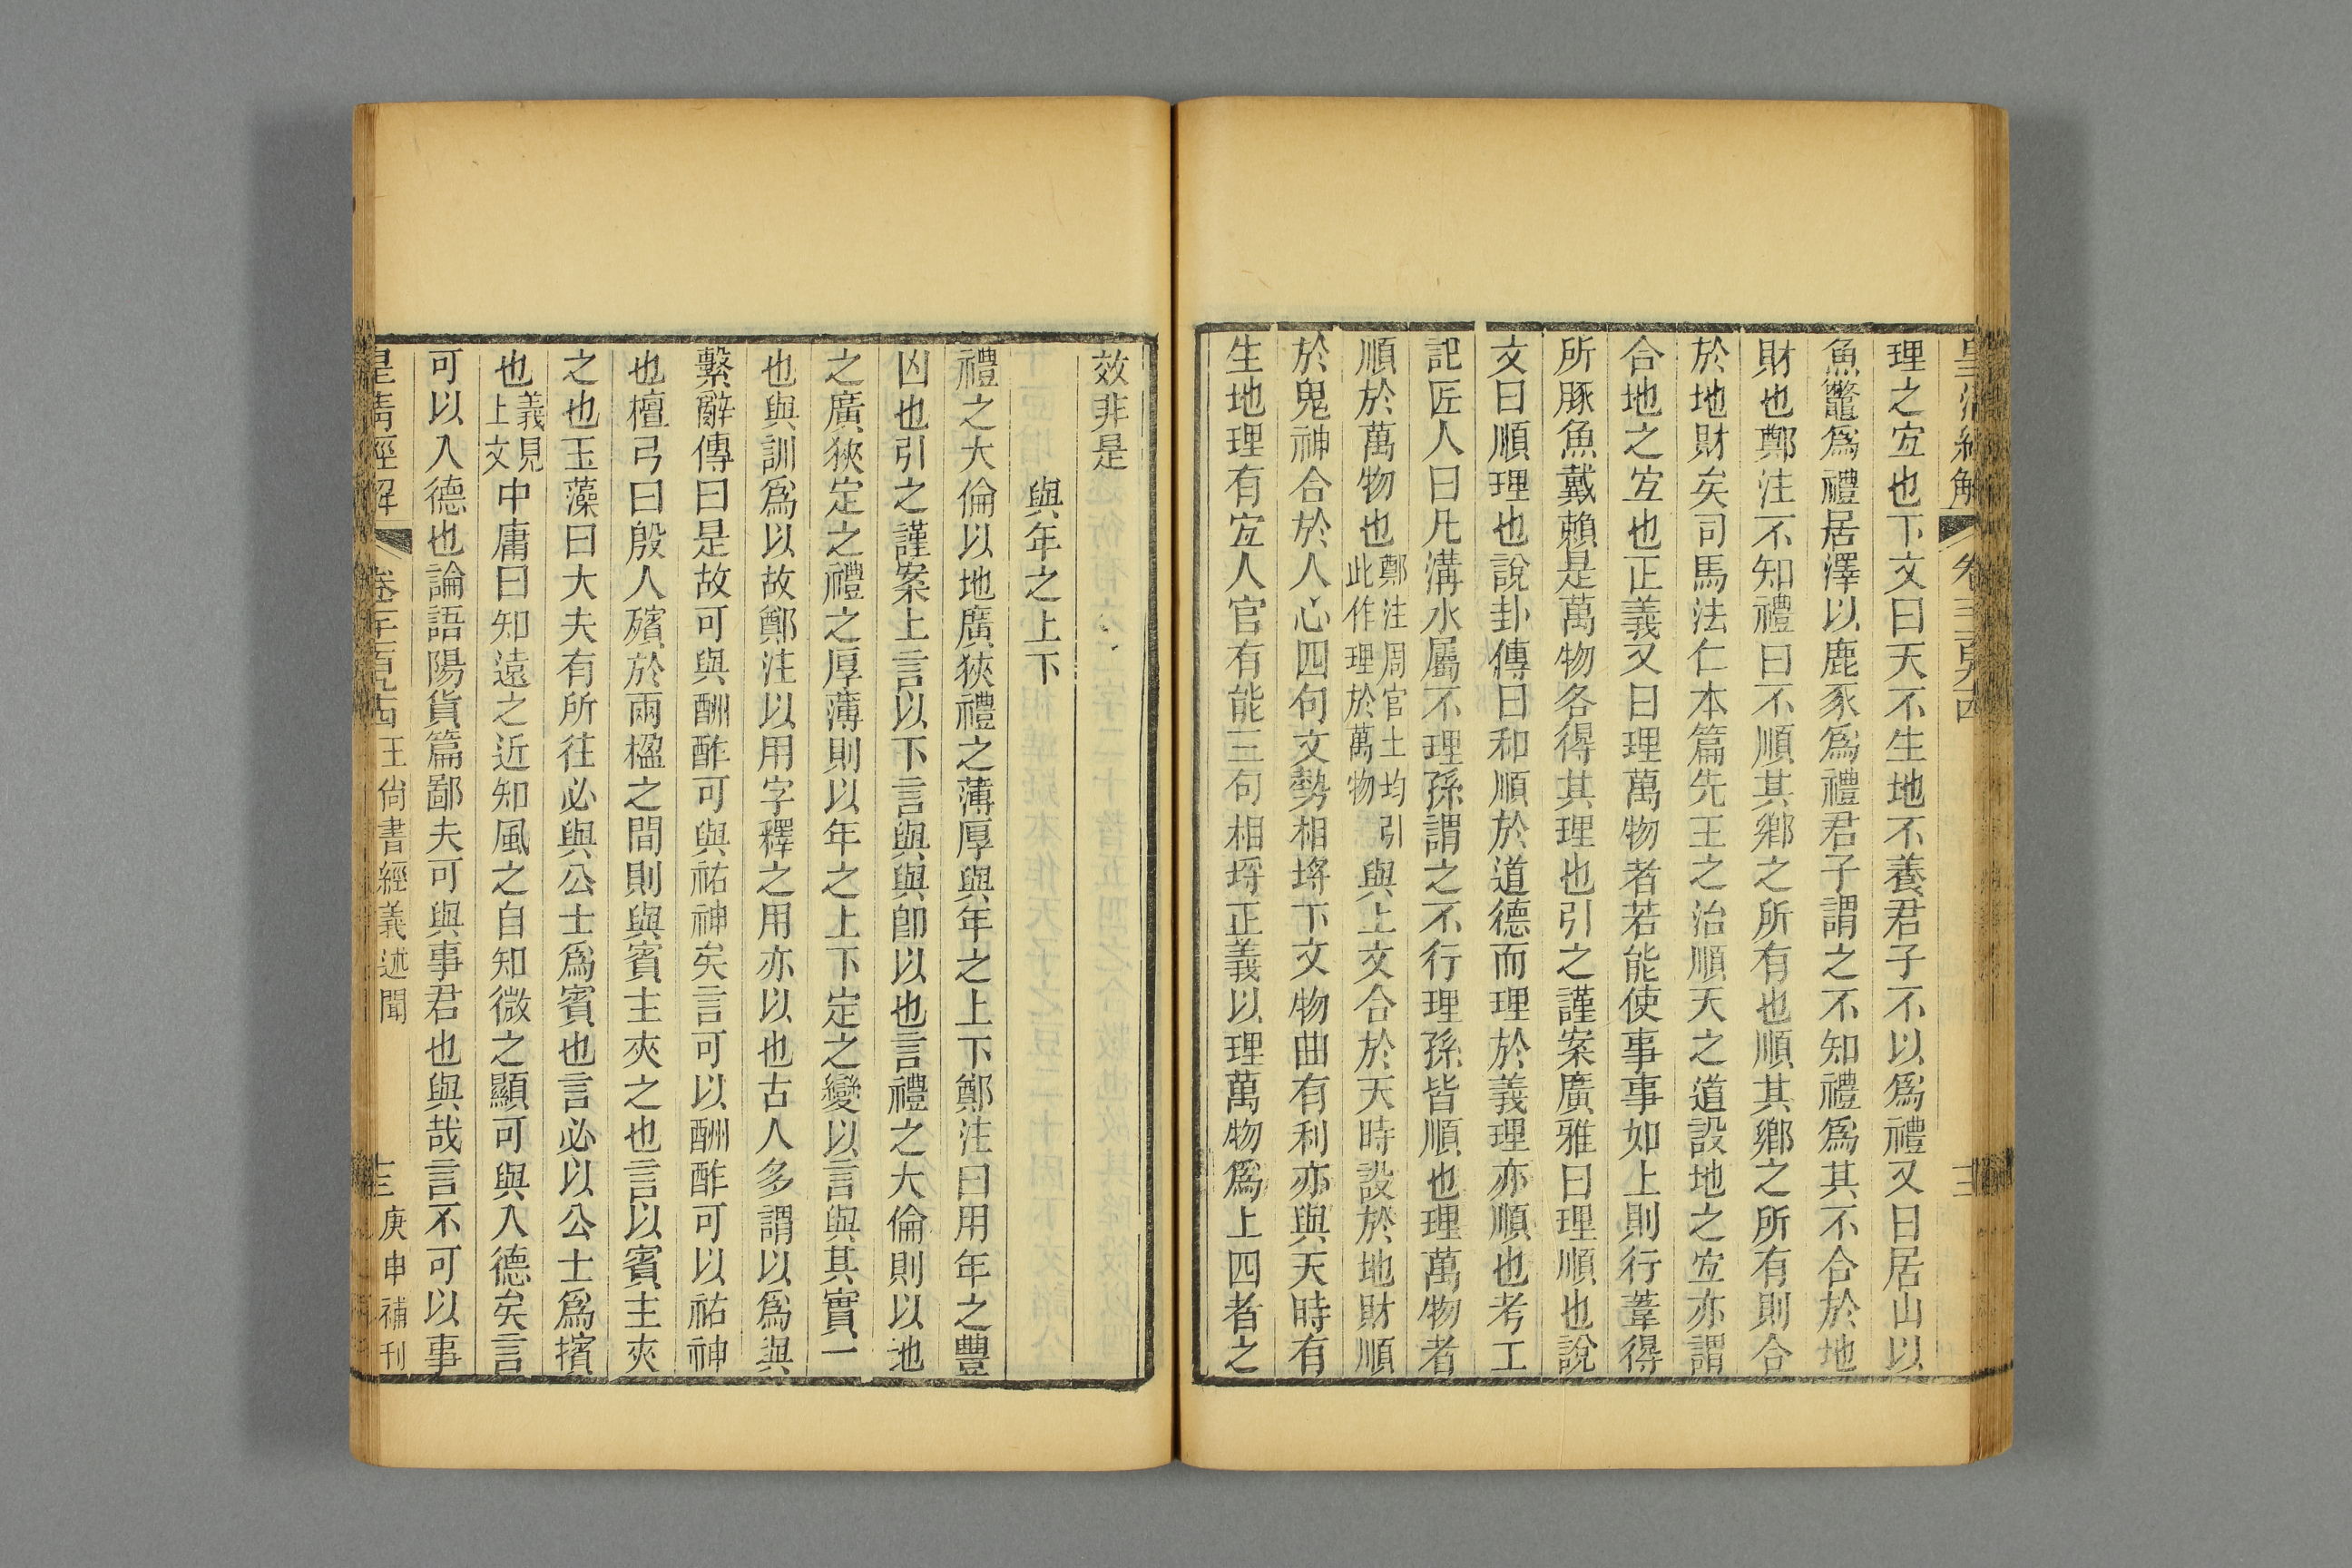 皇清經解 卷千一百九十四
理之宜也下文曰天不生地不養君子不以爲禮又曰居山以
魚鼈爲禮居澤以鹿豕爲禮君子謂之不知禮爲其不合於地
財也鄭注不知禮曰不順其鄕之所有也順其鄕之所有則合
於地財矣司馬法仁本篇先王之治順天之道設地之宐亦謂
合地之宐也正義又曰理萬物者若能使事事如上則行葦得
所豚魚戴賴是萬物各得其理也引之謹案廣雅曰理順也說
文曰順理也說卦傳曰和順於道德而理於義理亦順也考工
記匠人曰凡溝水屬不理孫謂之不行理孫皆順也理萬物者
順於萬物也鄭注周官土均引此作理於萬物與上文合於天時設於地財順
於鬼神合於人心四句文勢相埒下文物曲有利亦與天時有
生地理有宐人官有能三句相埒正義以理萬物爲上四者之
效非是
與年之上下
禮之大倫以地廣狹禮之薄厚與年之上下鄭注曰用年之豐
凶也引之謹案上言以下言與與卽以也言禮之大倫則以地
之廣狹定之禮之厚薄則以年之上下定之變以言與其實一
也與訓爲以故鄭注以用字釋之用亦以也古人多謂以爲與
繫辭傳曰是故可與酬酢可與祐神矣言可以酬酢可以祐神
也檀弓曰殷人殯於兩楹之間則與賓主夾之也言以賓主夾
之也玉藻曰大夫有所往必與公士爲賓也言必以公士爲擯
也義見上文中庸曰知遠之近知風之自知微之顯可與入德矣言
可以入德也論語陽貨篇鄙夫可與事君也與哉言不可以事
皇清經解 王尙書經義述聞 庚申補刊